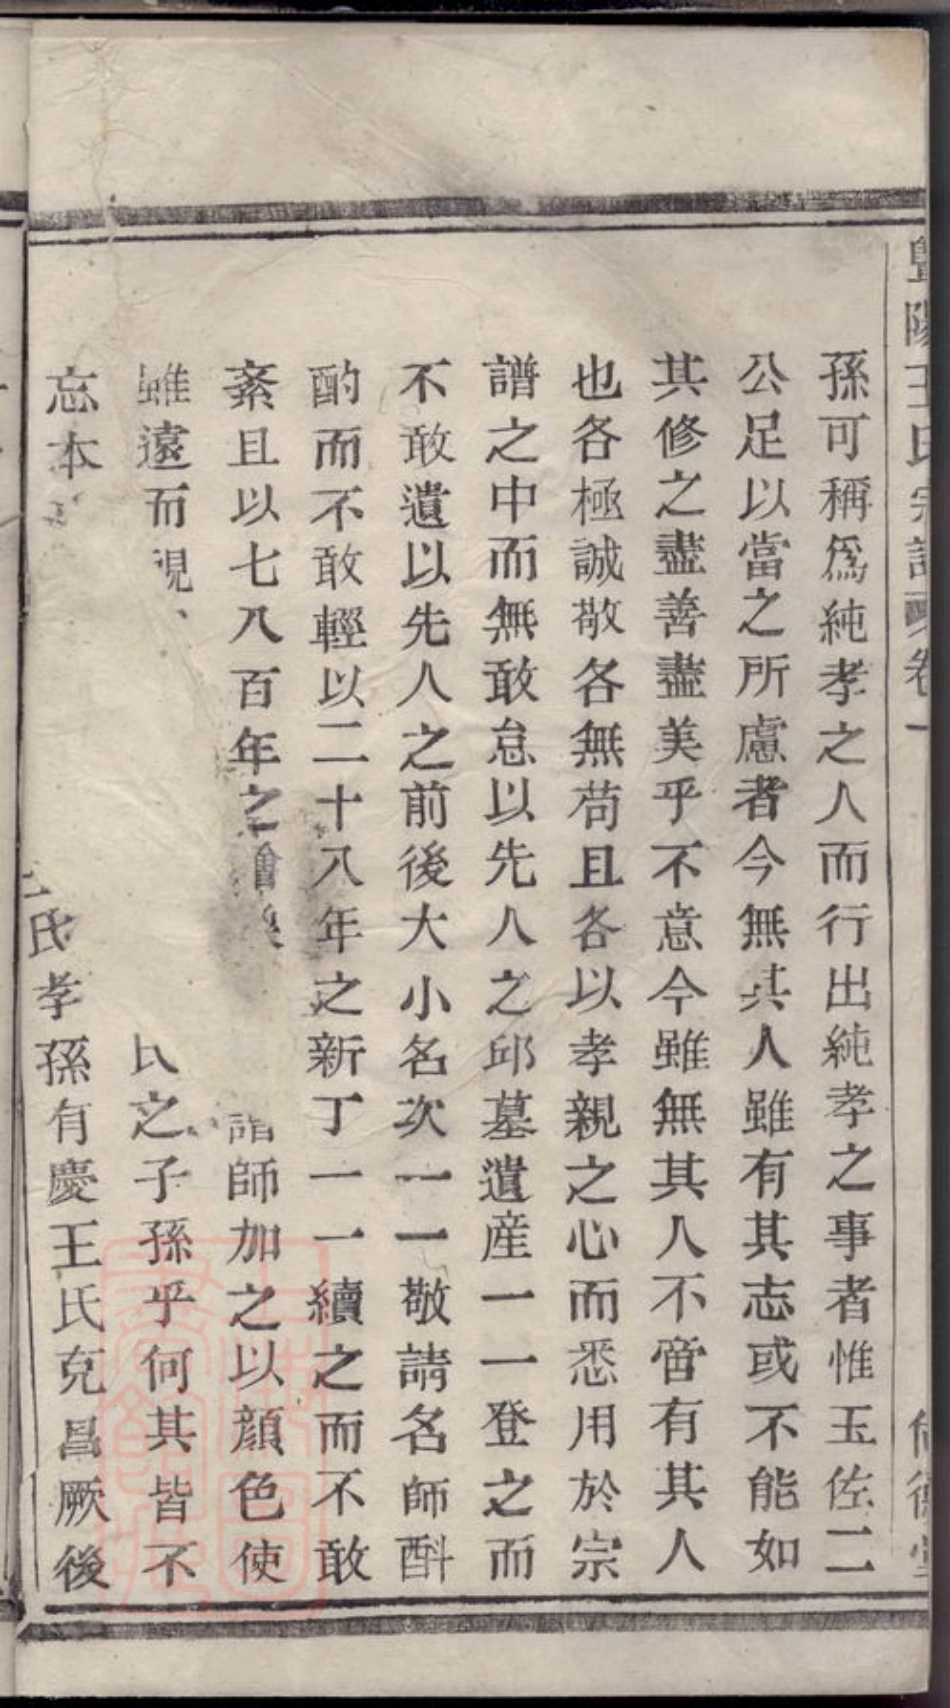 暨陽王氏宗譜 卷一
孫可稱爲純孝之人而行出純孝之事者惟玉佐二
公足以當之所慮者今無其人雖有其志或不能如
其修之盡善盡美乎不意今雖無其人不啻有其人
也各極誠敬各無苟且各以孝親之心而悉用於宗
譜之中而無敢怠以先人之邱墓遺産一一登之而
不敢遺以先人之前後大小名次一一敬請名師斟
酌而不敢輕以二十八年之新丁一一續之而不敢
紊且以七八百年之 師加之以顔色使
雖遠而視 氏之子孫乎何其皆不
忘本 氏孝孫有慶王氏克昌厥後